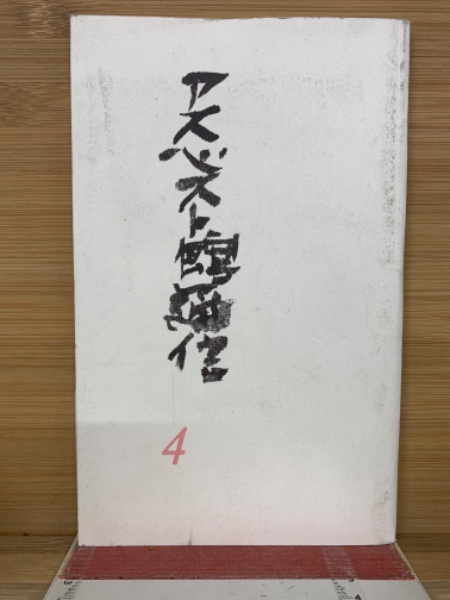 アスベスト館通信
4